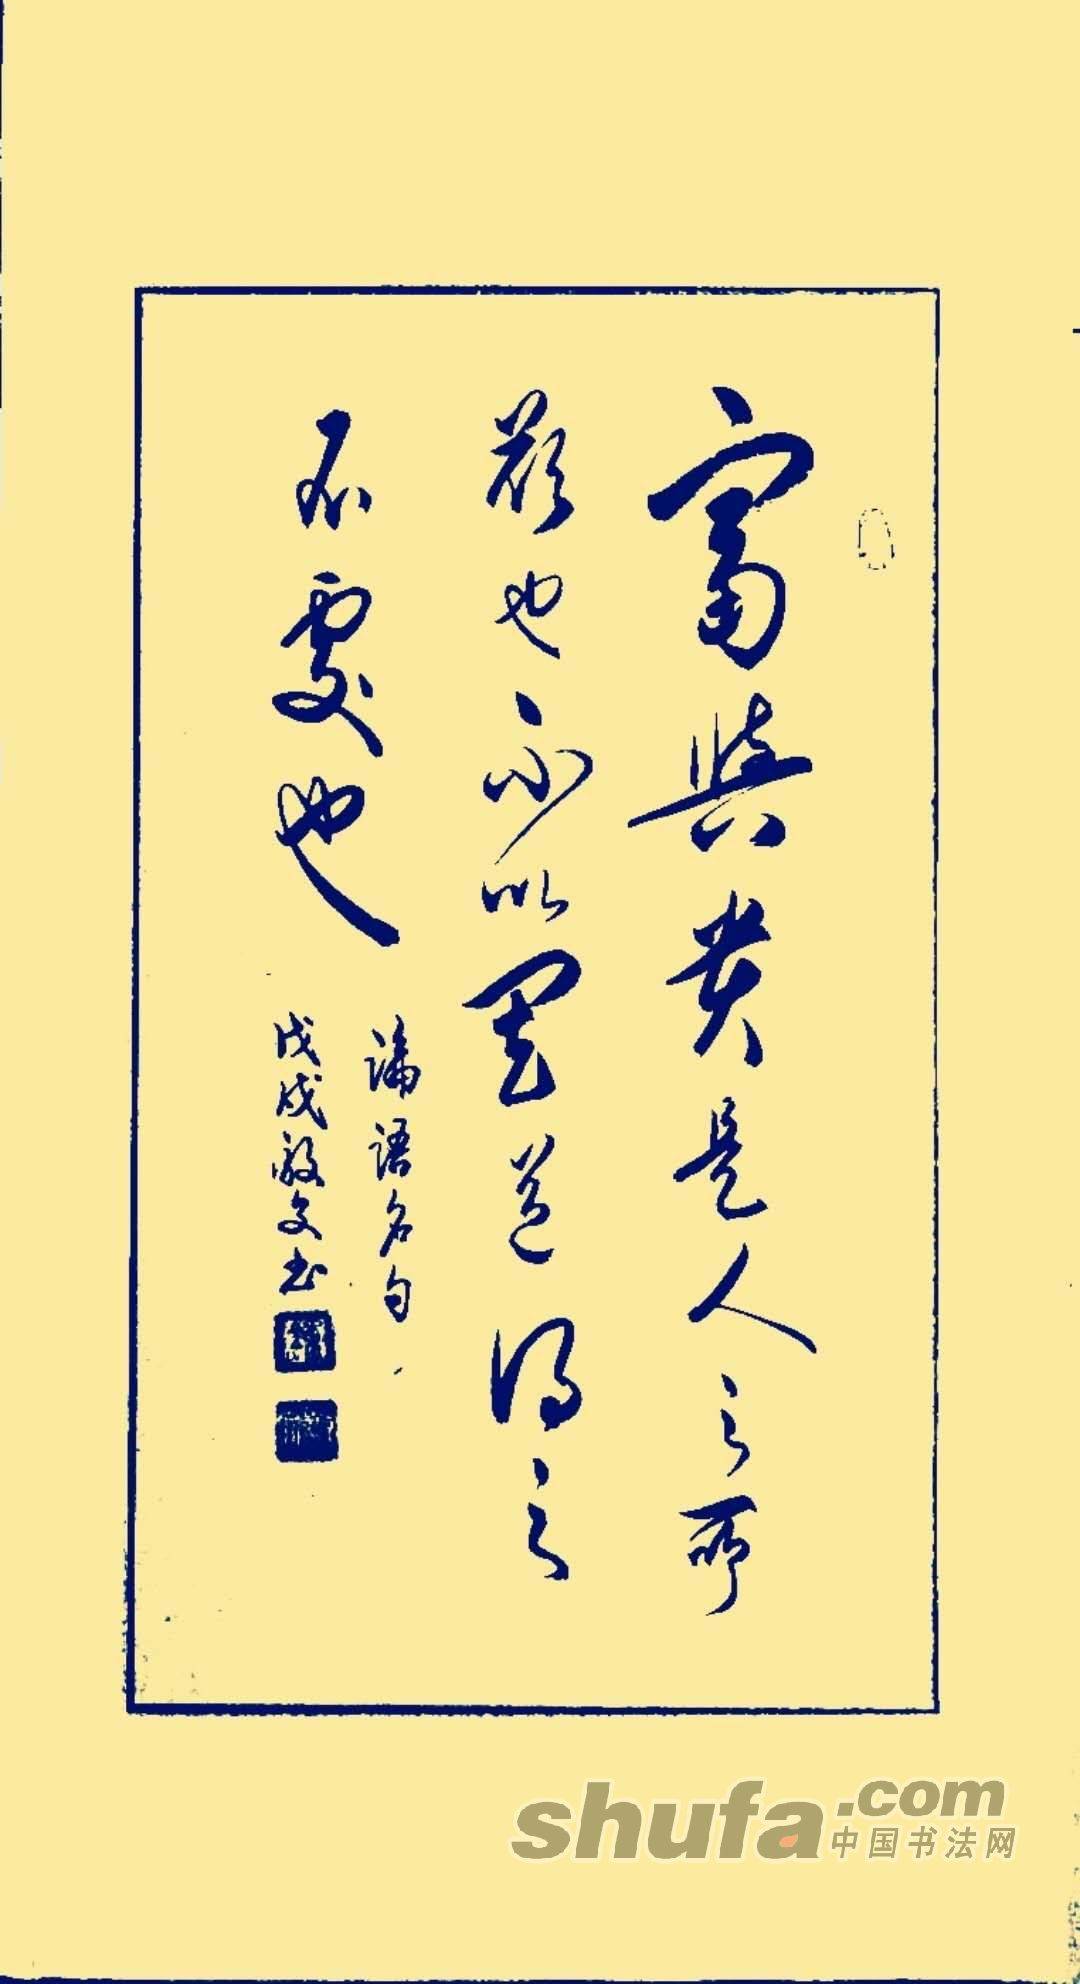 富與貴是人之所
欲也不以其道得之
不處也
論語名句
戊戌文书
shufa.com
中国书法网